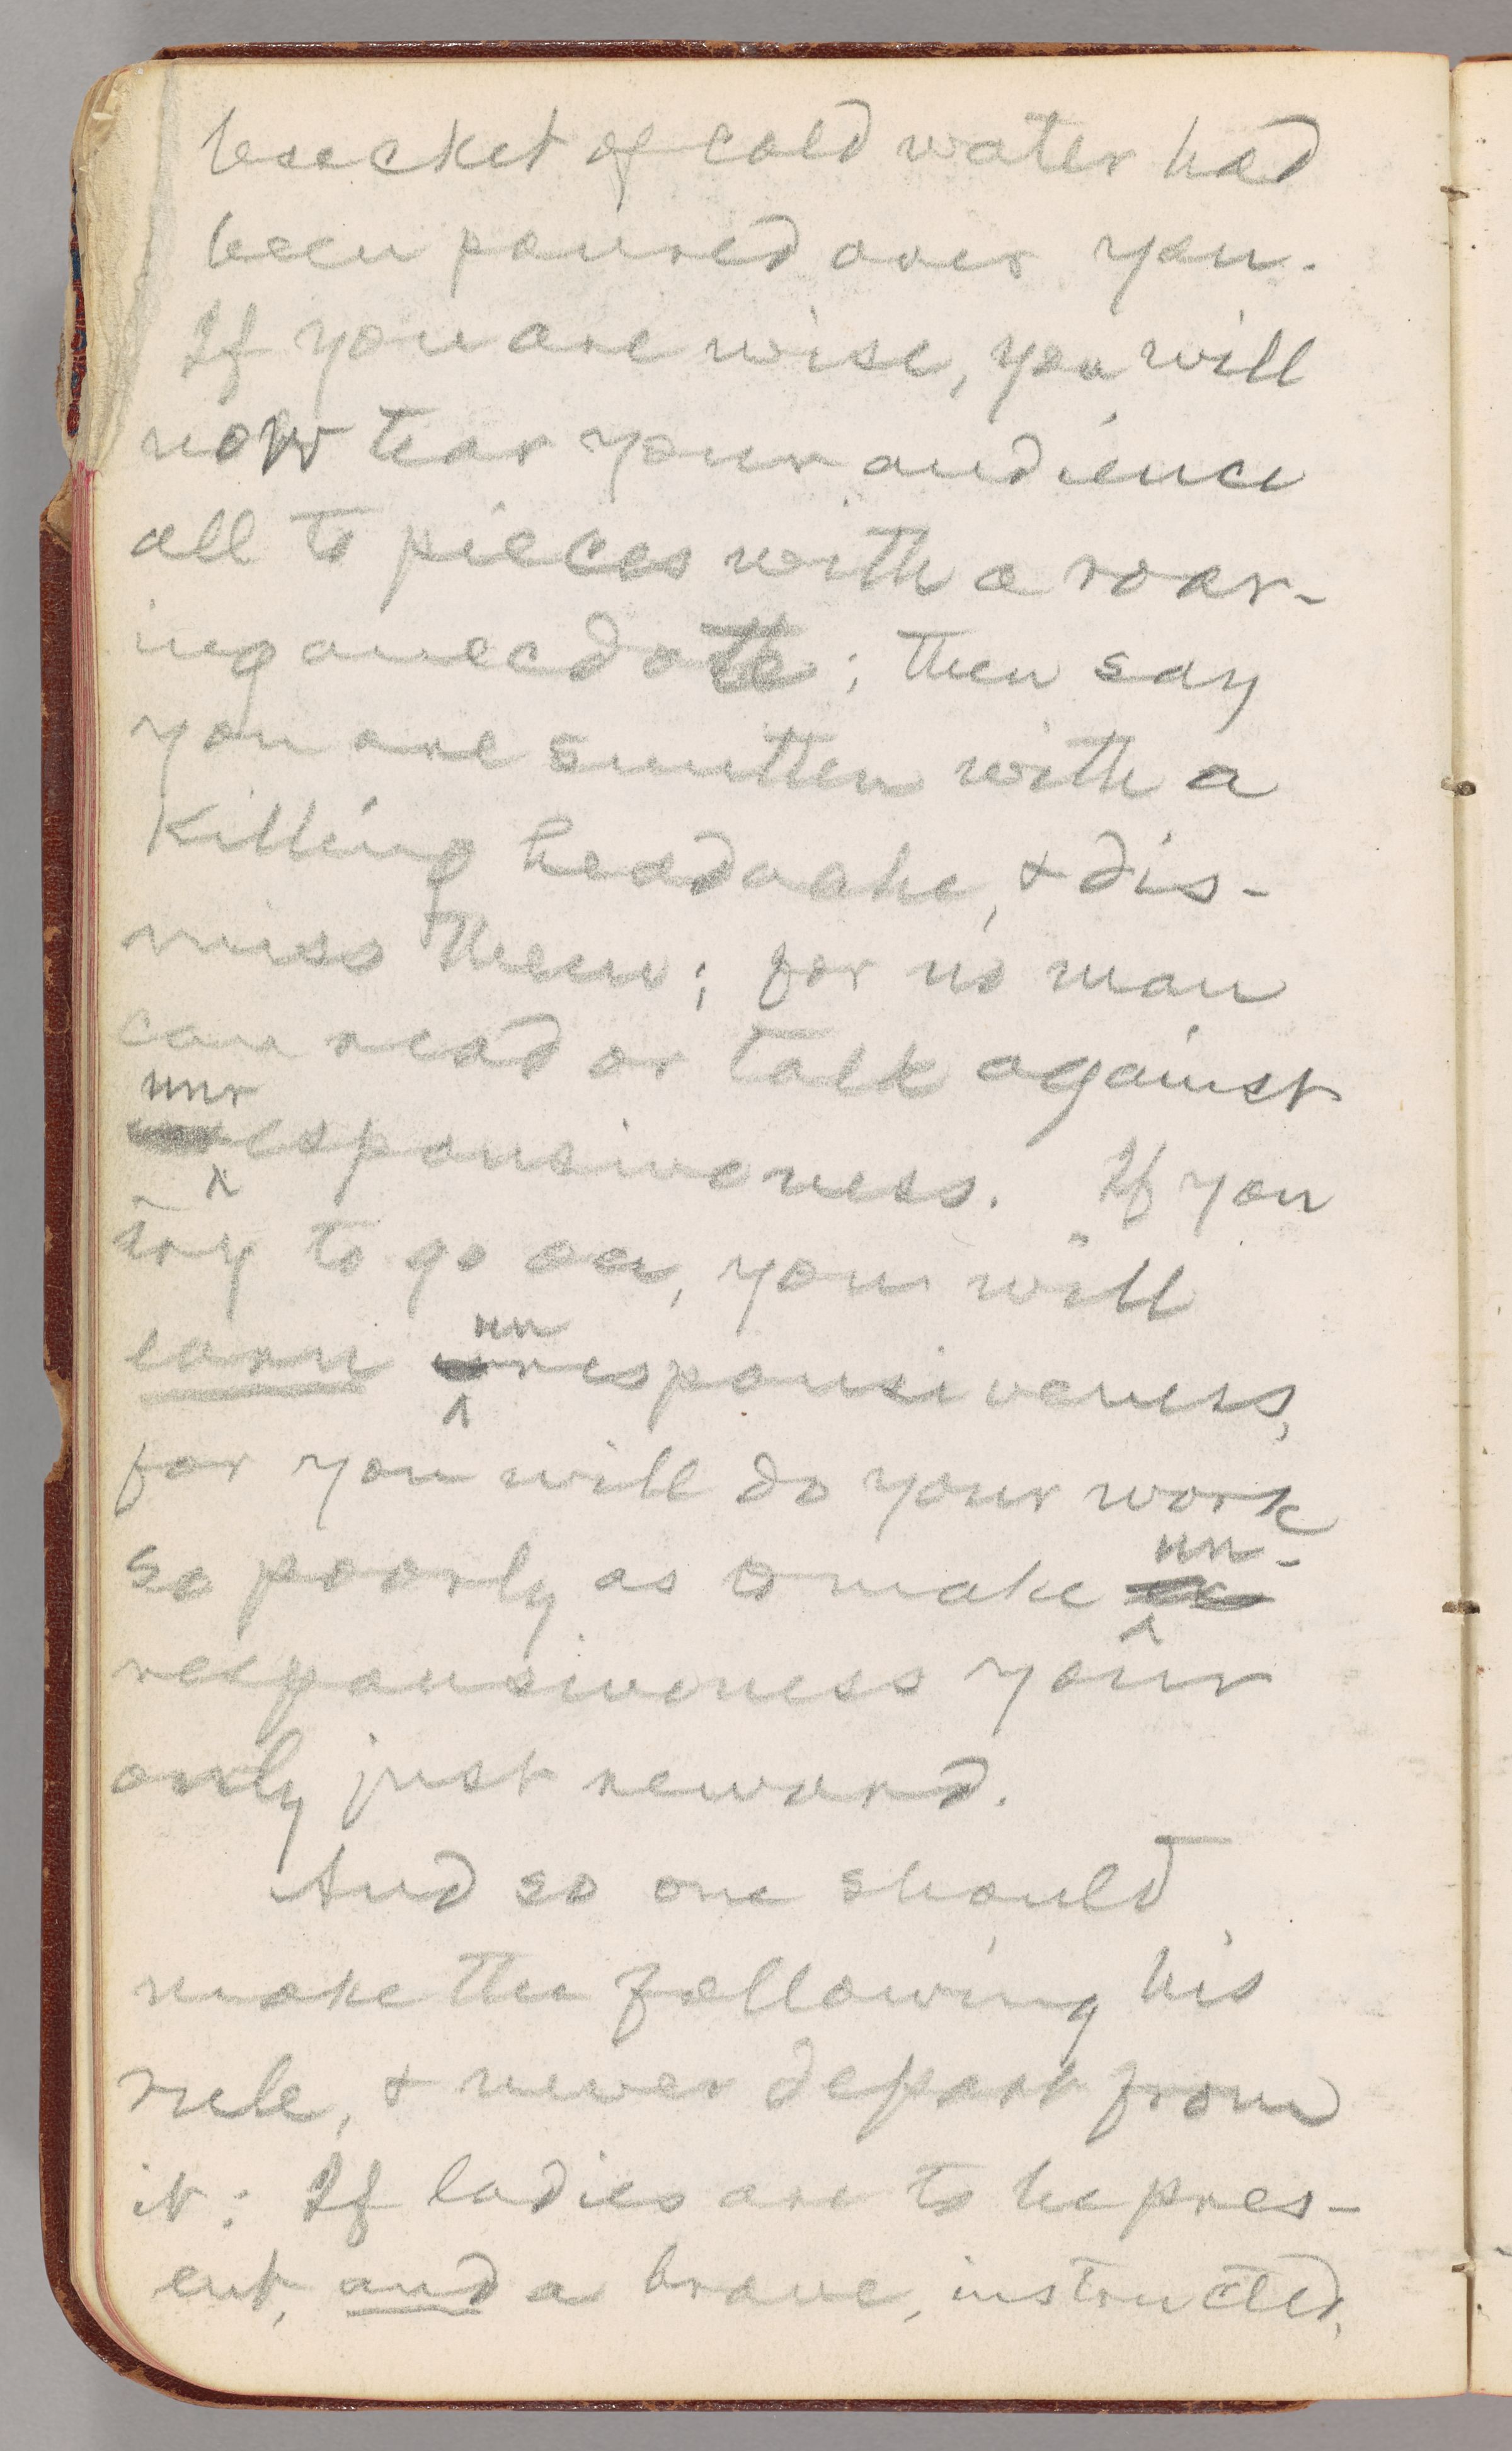 bucket of cold water had
been poured over you.
If you are wise, you will
now tear your audience
all to pieces with a roar-
ing anecdote; then say
you are smitten with a
killing headache, & dis-
miss them; for no man
can read or talk against
unr
esponsiveness. If you
try to go on, you will
un
earn responsiveness,
for you will do your work
un-
so poorly as to make
responsiveness your
only just reward.
And so one should
make the following his
rule, & never depart from
it: If ladies are to be pres-
ent, and a brave, instructed,